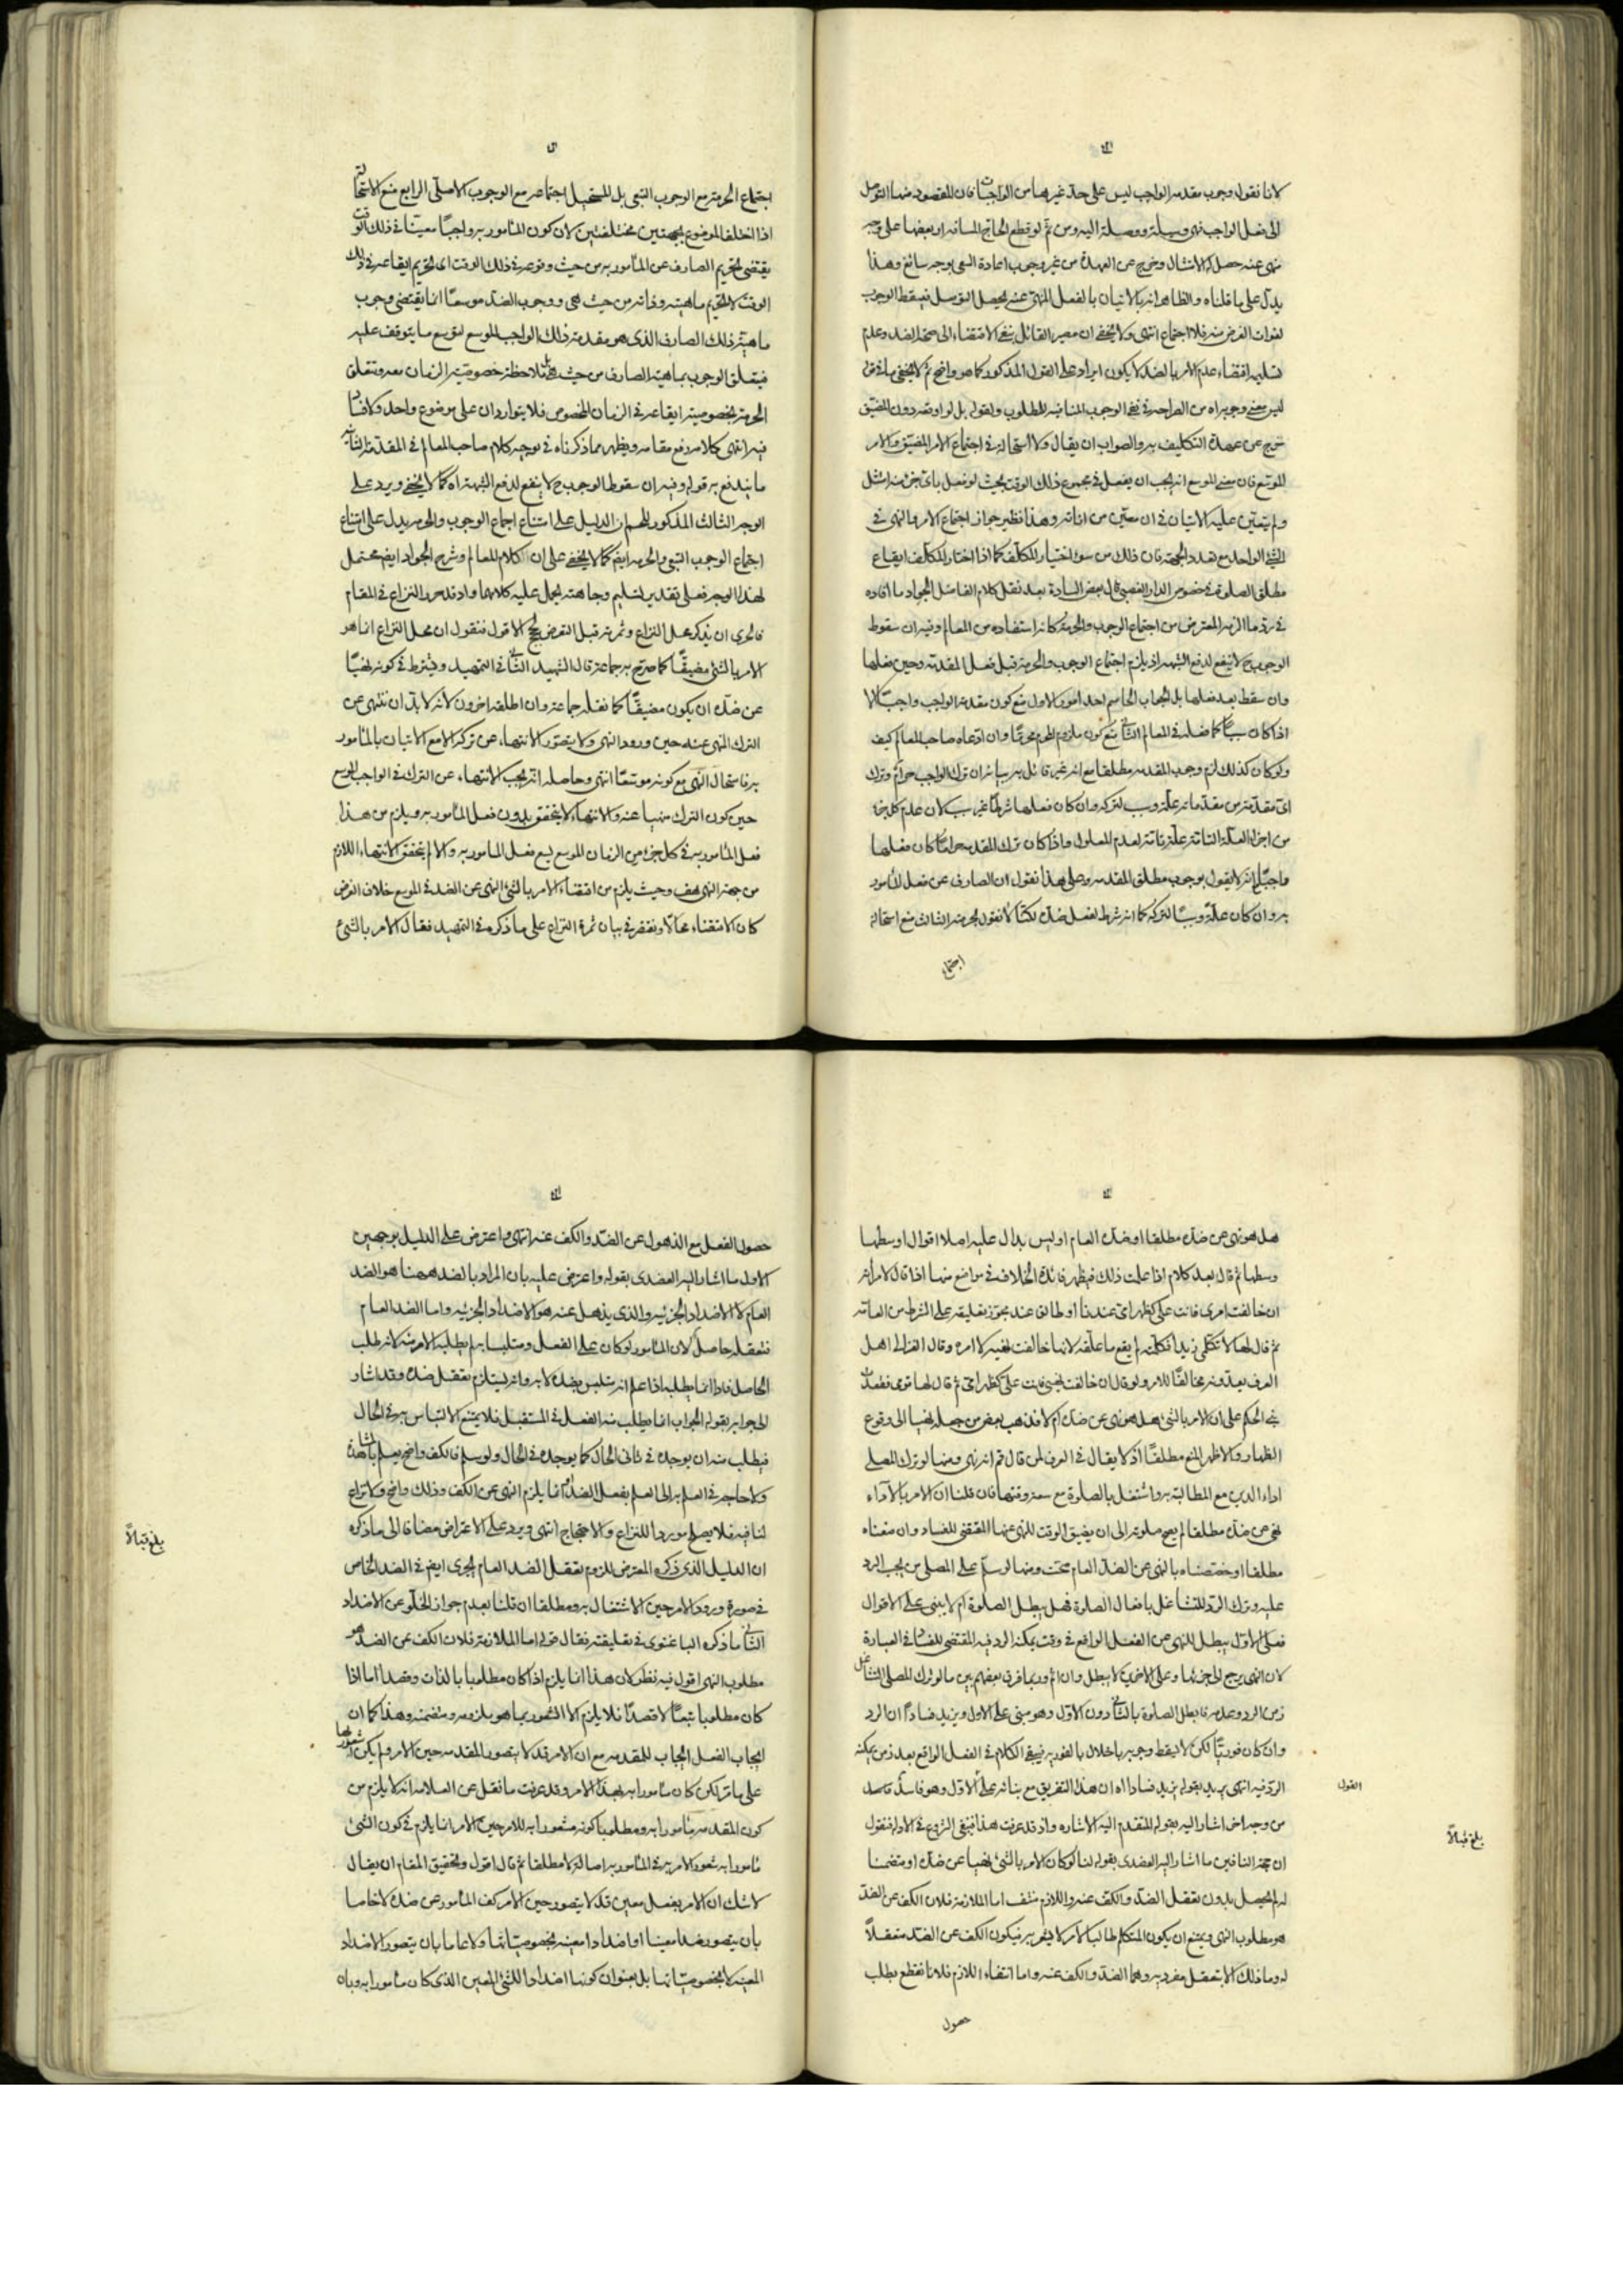 لانا نقول وجوب مقدمة الواجب ليس على حد غيرها من الواجبات فان المقصود منها التوصل
الى فعل الواجب فهى وسيلة ووصلة اليه ومن ثم لو قطع الحاج المسافة او بعضها على وجه
منهى عنه حصل له الامتثال وخرج عن العهدة من غير وجوب اعادة السعى بوجه سائغ وهذا
يدل على ما قلناه والظاهر انه بالاتيان بالفعل المنهى عنه يحصل التوصل فيسقط الوجوب
لفوات الغرض منه فلا اجتماع انتهى ولا يخفى ان مصير القائل بنفى الاقتضاء الى صحة الضد وعدم
تسليم اقتضاء عدم الامر بالضد لا يكون ايراد على القول المذكور كما هو واضح ثم لا يخفى ما فى قوله
ليس معنى وجوبه اه من الصراحة فى نفى الوجوب المنافية للمطلوب ولقوله بل لو اوقعه دون المضيق
خرج عن عهدة التكليف به والصواب ان يقال ولا استحالة فى اجتماع الامر المضيق والامر
الموسع فان معنى الموسع انه يجب ان يفعل فى مجموع ذلك الوقت بحيث لو فعل باى جزء منه امتثل
ولم يتعين عليه الاتيان فى ان معين من اناته وهذا نظير جواز اجتماع الامر والنهى فى
الشئ الواحد مع تعدد الجهة فان ذلك من سوء اختيار المكلف كما اذا اختار المكلف ايقاع
مطلق الصلوة فى خصوص الدار الغصبى قال بعض السادة بعد نقل كلام الفاضل الجواد ما افاده
فى رد ما الزمه المعترض من اجتماع الوجوب والحرمة كانه استفاده من المعالم وفيه ان سقوط
الوجوب ح لا ينفع لدفع الشبهة اذ يلزم اجتماع الوجوب والحرمة قبل فعل المقدمة وحين فعلها
وان سقط بعد فعلها بل الجواب الحاسم احد امور الاول منع كون مقدمة الواجب واجبة الا
اذا كان سببا كما فصله فى المعالم الثانى منع كون ملزوم المحرم محرما وان ادعاه صاحب المعالم كيف
ولو كان كذلك لزم وجوب المقدمة مطلقا مع انه غير قائل به بيانه ان ترك الواجب حرام وترك
اى مقدمة من مقدماته علة وسبب لتركه وان كان فعلها شرطا غير سبب لان عدم كل جزء
من اجزاء العلة التامة علة تامة لعدم المعلول واذا كان ترك المقدمة حراما كان فعلها
واجبا مع انه لا يقول بوجوب مطلق المقدمة وعلى هذا نقول ان الصارف عن فعل المأمور
به وان كان علة وسببا لتركه كما انه شرط لفعل ضده لكنا لا نقول بحرمته الثالث منع استحالة
اجتماع
اجتماع الحرمة مع الوجوب التبعى بل المستحيل اجتماعه مع الوجوب الاصلى الرابع منع الاستحالة
اذا اختلف الموضوع بجهتين مختلفتين لان كون المأمور به واجبا معينا فى ذلك الوقت
يقتضى تحريم الصارف عن المأمور به من حيث وقوعه فى ذلك الوقت اى تحريم ايقاعه فى ذلك
الوقت لا تحريم ماهيته وذاته من حيث هى ووجوب الضد موسعا انما يقتضى وجوب
ماهية ذلك الصارف الذى هو مقدمة ذلك الواجب الموسع لتوسع ما يتوقف عليه
فيتعلق الوجوب بماهية الصارف من حيث هى بلا ملاحظة خصوصية الزمان معه وتتعلق
الحرمة بخصوصية ايقاعه فى الزمان المخصوص فلا يتواردان على موضوع واحد ولا فساد
فيه انتهى كلامه رفع مقامه ويظهر مما ذكرناه فى توجيه كلام صاحب المعالم فى المقدمة الثانية
ما يندفع به قوله وفيه ان سقوط الوجوب ح لا ينفع لدفع الشبهة اه كما لا يخفى ويرد على
الوجه الثالث المذكور للحسم ان الدليل على امتناع اجتماع الوجوب والحرمة يدل على امتناع
اجتماع الوجوب التبعى والحرمة ايضا كما لا يخفى على ان كلام المعالم وشرح الجواد ايضا محتمل
لهذا الوجه فعلى تقدير تسليم وجاهته يحمل عليه كلامهما واذ قد حرر النزاع فى المقام
فالحرى ان يذكر محل النزاع وثمرته قبل التعرض لحجج الاقوال فنقول ان محل النزاع انما هو
الامر بالشئ مضيقا كما صرح به جماعة قال الشهيد الثانى فى التمهيد ويشترط فى كونه نهيا
عن ضده ان يكون مضيقا كما نقله جماعة وان اطلقه اخرون لانه لا بد ان ننتهى عن
الترك المنهى عنه حين ورود النهى ولا يتصور الانتهاء عن تركه الا مع الاتيان بالمأمور
به فاستحال النهى مع كونه موسعا انتهى وحاصله انه يجب الانتهاء عن الترك فى الواجب الموسع
حين كون الترك منهيا عنه والانتهاء لا يتحقق بدون فعل المأمور به ويلزم من هذا
فعل المأمور به فى كل جزء من الزمان الموسع ليسع فعل المأمور به والا لم يتحقق الانتهاء اللازم
من جهة النهى هف وحيث يلزم من اقتضاء الامر بالشئ النهى عن الضد فى الموسع خلاف الفرض
كان الاقتضاء محالا ونقتفر فى بيان ثمرة النزاع على ما ذكره فى التمهيد فقال الامر بالشئ
هل هو نهى عن ضده مطلقا او ضده العام او ليس بدال عليه اصلا اقوال اوسطها
وسطها ثم قال بعد كلام اذا علمت ذلك فيظهر فائدة الخلاف فى مواضع منها اذا قال لامرأته
ان خالفت امرى فانت على كظهر امى عندنا او طالق عند مجوز تعليقه على الشرط من العامة
ثم قال لها لا تكلمى زيدا فكلمته لم يقع ما علقه لانها خالفت نهيه لا امره وقال الغزالى اهل
العرف يعدونه مخالفا للامر ولو قال ان خالفت نهيى فانت على كظهر امى ثم قال لها قومى فقعدت
بنى الحكم على ان الامر بالشئ هل هو نهى عن ضده ام لا فذهب بعض من جعله نهيا الى وقوع
الظهار والاظهر المنع مطلقا اذ لا يقال فى العرف لمن قال قم انه نهى ومنها لو ترك المصلى
اداء الدين مع المطالبة به واشتغل بالصلوة مع سعة وقتها فان قلنا ان الامر بالاداء
نهى عن ضده مطلقا لم يصح صلوته الى ان يضيق الوقت للنهى عنها المقتضى للفساد وان منعناه
مطلقا او خصصناه بالنهى عن الضد العام صحت ومنها لو سلم على المصلى من يجب الرد
عليه وترك الرد للتشاغل بافعال الصلوة فهل يبطل الصلوة ام لا يبنى على الاقوال
فعلى الاول يبطل للنهى عن الفعل الواقع فى وقت يمكنه الرد فيه المقتضى للفساد فى العبادة
لان النهى يرجع الى جزئها وعلى الاخيرين لا يبطل وان اثم وربما فرق بعضهم بين ما لو ترك المصلى التشاغل
زمن الرد وعدمه فابطل الصلوة بالثانى دون الاول وهو مبنى على الاول ويزيد فسادا ان الرد
وان كان فوريا لكن لا يسقط وجوبه باخلال بالفورية فيبقى الكلام فى الفعل الواقع بعد زمن يمكنه
الرد فيه انتهى يريد بقوله يزيد فسادا اه ان هذا التفريق مع بنائه على الاول وهو فاسد فاسد
القول
من وجه اخر اشار اليه بقوله المتقدم اليه الاشارة واذ قد عرفت هذا فينبغى الشروع فى الادلة فنقول
بلغ قبالا
ان حجة النافين ما اشار اليه العضدى بقوله لنا لو كان الامر بالشئ نهيا عن ضده او متضمنا
له لم يحصل بدون تعقل الضد والكف عنه واللازم منتف اما الملازمة فلان الكف عن الضد
هو مطلوب النهى ويمتنع ان يكون المتكلم طالبا لامر لا يشعر به فيكون الكف عن الضد متعقلا
له وما ذلك الا بتعقل مفرديه وهما الضد والكف عنه واما انتفاء اللازم فلانا نقطع بطلب
حصول
حصول الفعل مع الذهول عن الضد والكف عنه انتهى واعترض على الدليل بوجهين
الاول ما اشار اليه العضدى بقوله واعترض عليه بان المراد بالضد ههنا هو الضد
العام لا الاضداد الجزئية والذى يذهل عنه هو الاضداد الجزئية واما الضد العام
فتعقله حاصل لان المأمور لو كان على الفعل ومتلبسا به لم يطلبه الامر منه لانه طلب
الحاصل فاذا انما يطلبه اذا علم انه متلبس بضده لا به وانه يستلزم تعقل ضده وقد اشار
الى جوابه بقوله الجواب انما يطلب منه الفعل فى المستقبل فلا يمنع الالتباس به فى الحال
فيطلب منه ان يوجده فى ثانى الحال كما يوجده فى الحال ولو سلم فالكف واضح يعلم بالمشاهدة
ولا حاجة فى العلم به الى العلم بفعل الضد وانما يلزم النهى عن الكف وذلك واضح ولا نزاع
لنا فيه فلا يصلح موردا للنزاع والاحتجاج انتهى ويرد على الاعتراض مضافا الى ما ذكره
بلغ قبالا
ان الدليل الذى ذكره المعترض للزوم تعقل الضد العام يجرى ايضا فى الضد الخاص
فى صورة ورود الامر حين الاشتغال به ومطلقا ان قلنا بعدم جواز الخلو عن الاضداد
الثانى ما ذكره الباغنوى فى تعليقته فقال قوله اما الملازمة فلان الكف عن الضد هو
مطلوب النهى اقول فيه نظر لان هذا انما يلزم اذا كان مطلوبا بالذات وقصدا اما اذا
كان مطلوبا تبعا لا قصدا فلا يلزم الا الشعور بما هو ملزومه ومتضمنه وهذا كما ان
ايجاب الفعل ايجاب للمقدمة مع ان الامر قد لا يتصور المقدمة حين الامر ولم يكن له شعور بها
على ما مر لكن كان مأمورا به بهذا الامر وقد عرفت ما نقل عن العلامة انه لا يلزم من
كون المقدمة مأمورا به ومطلوبا كونه مشعورا به للامر حين الامر انما يلزم فى كون الشئ
مأمورا به شعور الامر به فى المأمور به اصالة لا مطلقا ثم قال اقول وتحقيق المقام ان يقال
لا شك ان الامر بفعل معين قد لا يتصور حين الامر كف المأمور عن ضده لا خاصا
بان يتصور ضدا معينا او اضدادا معينة بخصوصياتها ولا عاما بان يتصور الاضداد
المعينة لا بخصوصياتها بل بعنوان كونها اضدادا للشئ المعين الذى كان مأمورا به وبان